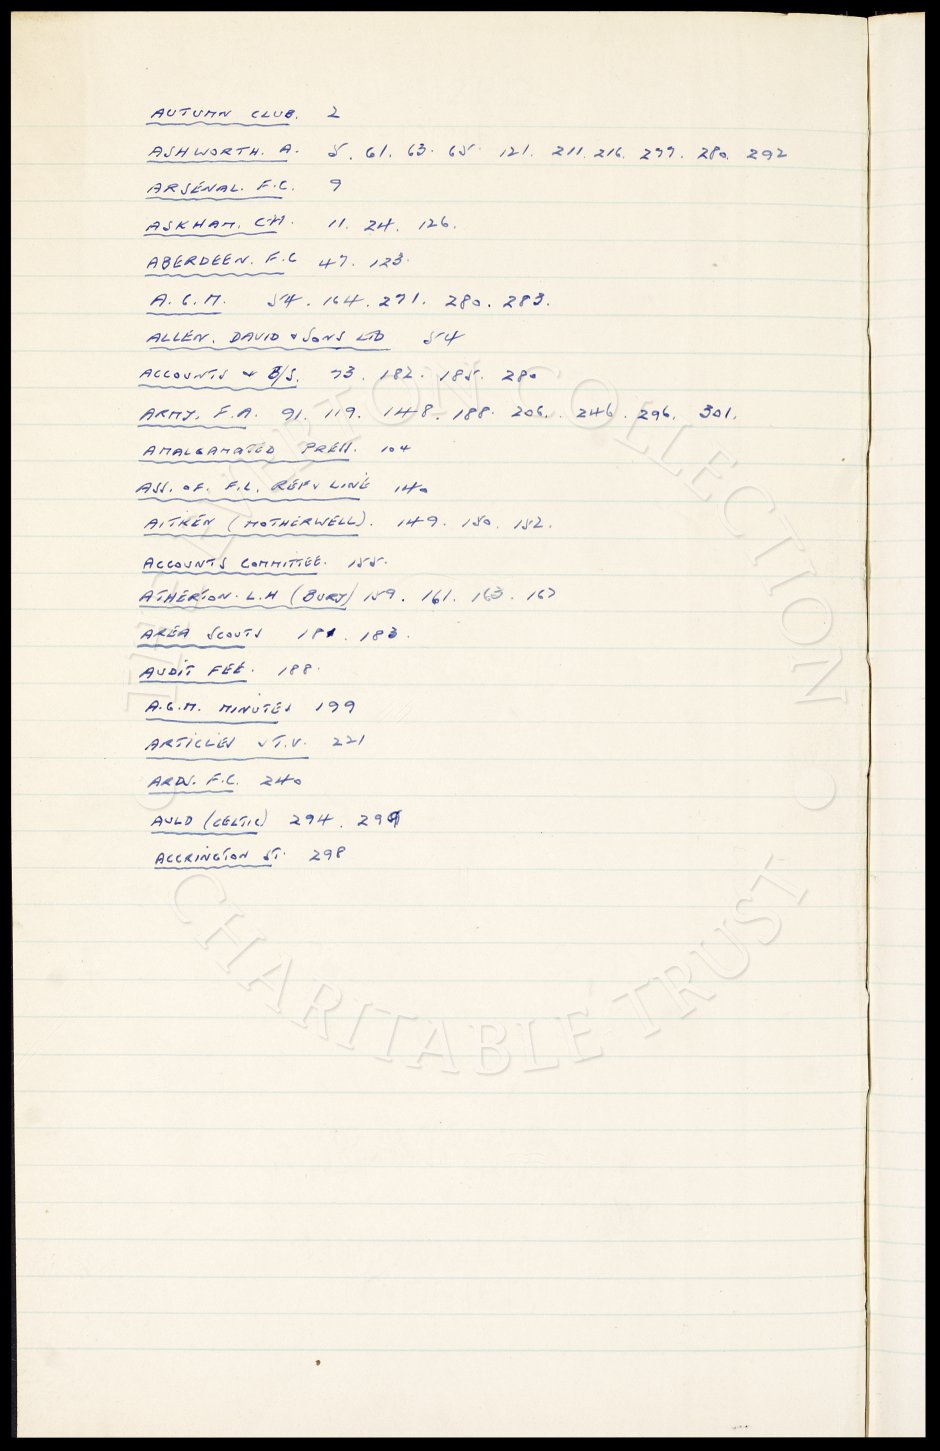 AUTUMN CLUB. 2
ASHWORTH. A. 5. 61. 63. 65. 121. 211. 216. 277. 280. 292
ARSENAL. F.C. 9
ASKHAM. CH. 11. 24. 126.
ABERDEEN. F.C 47. 123.
A.G.M. 54. 164. 271. 280. 283.
ALLEN. DAVID & SONS LTD 54
ACCOUNTS & B/S. 73. 182. 185. 280
ARMY. F.A. 91. 119. 148. 188. 206. 246. 296. 301.
AMALGAMATED PRESS. 104
ASS. OF. F.L. REFS & LINE 140
AITKEN (MOTHERWELL). 149. 150. 152.
ACCOUNTS COMMITTEE. 155.
ATHERTON. L.H (BURY) 159. 161. 163. 167
AREA SCOUTS 181. 183.
AUDIT FEE. 188.
A.G.M. MINUTES 199
ARTICLES & T.V. 221
ARDS. F.C. 240
AULD (CELTIC) 294. 299
ACCRINGTON ST. 298
THE EVERTON COLLECTION
CHARITABLE TRUST